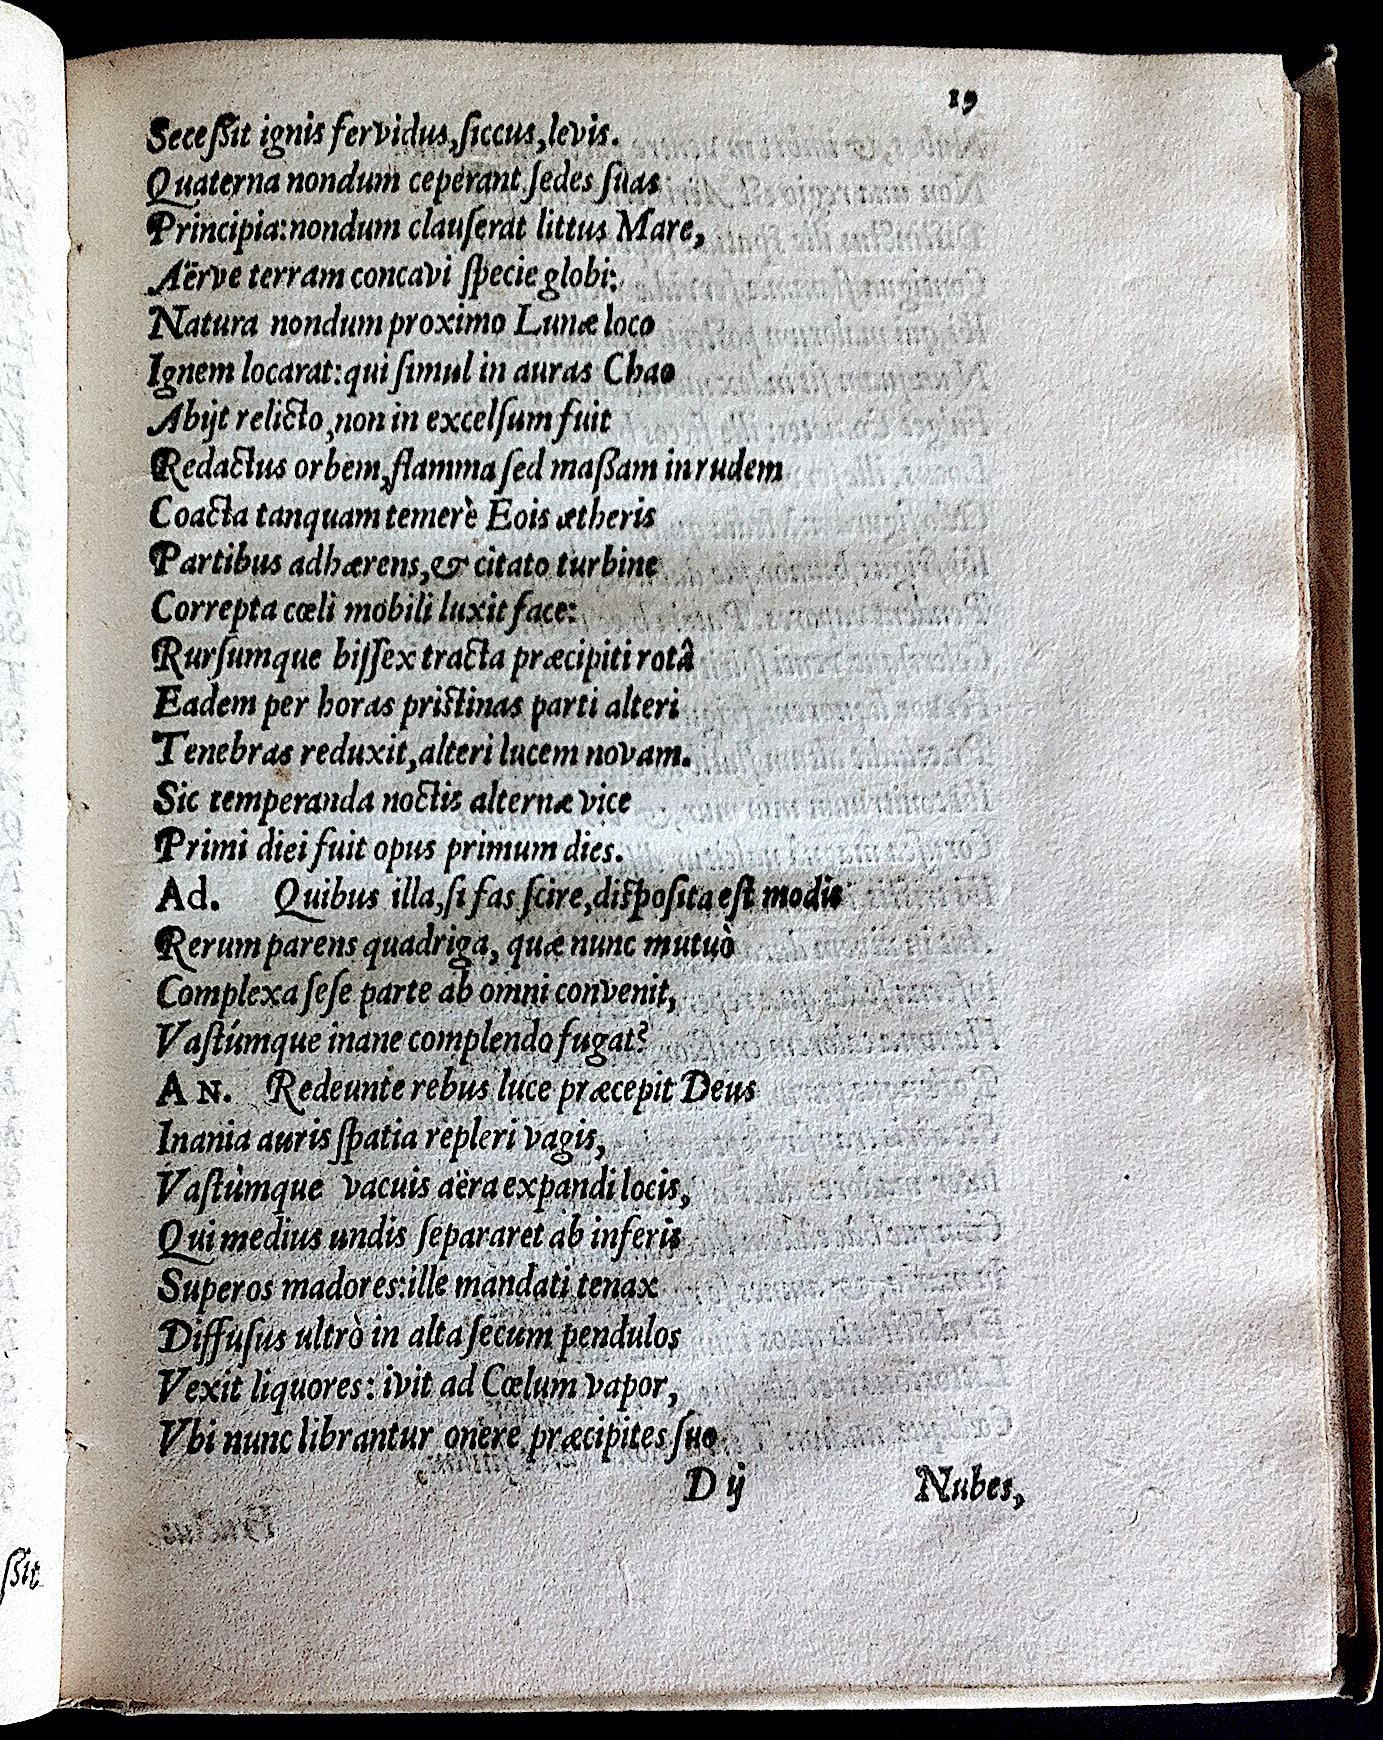 19
Seceſſit ignis fervidus,ſiccus,levis.
Quaterna nondum ceperant ſedes ſuas
Principia:nondum clauſerat littus Mare,
Aërve terram concavi ſpecie globi:
Natura nondum proximo Lunæ loco
Ignem locarat:qui ſimul in auras Chao
Abijt relicto,non in excelſum fuit
Redactus orbem,flamma ſed maſſam in rudem
Coacta tanquam temerè Eois ætheris
Partibus adhærens,& citato turbine
Correpta cœli mobili luxit face:
Rurſumque biſſex tracta præcipiti rotâ
Eadem per horas priſtinas parti alteri
Tenebras reduxit,alteri lucem novam.
Sic temperanda noctis alternæ vice
Primi diei fuit opus primum dies.
Ad. Quibus illa,ſi fas ſcire,diſpoſita eſt modis
Rerum parens quadriga, quæ nunc mutuò
Complexa ſeſe parte ab omni convenit,
Vaſtúmque inane complendo fugat?
AN. Redeunte rebus luce præcepit Deus
Inania auris ſpatia repleri vagis,
Vaſtùmque vacuis aëra expandi locis,
Qui medius undis ſepararet ab inferis
Superos madores:ille mandati tenax
Diffuſus ultrò in alta ſecum pendulos
Vexit liquores: ivit ad Cœlum vapor,
Vbi nunc librantur onere præcipites ſuo
D ij Nubes,
ſſit